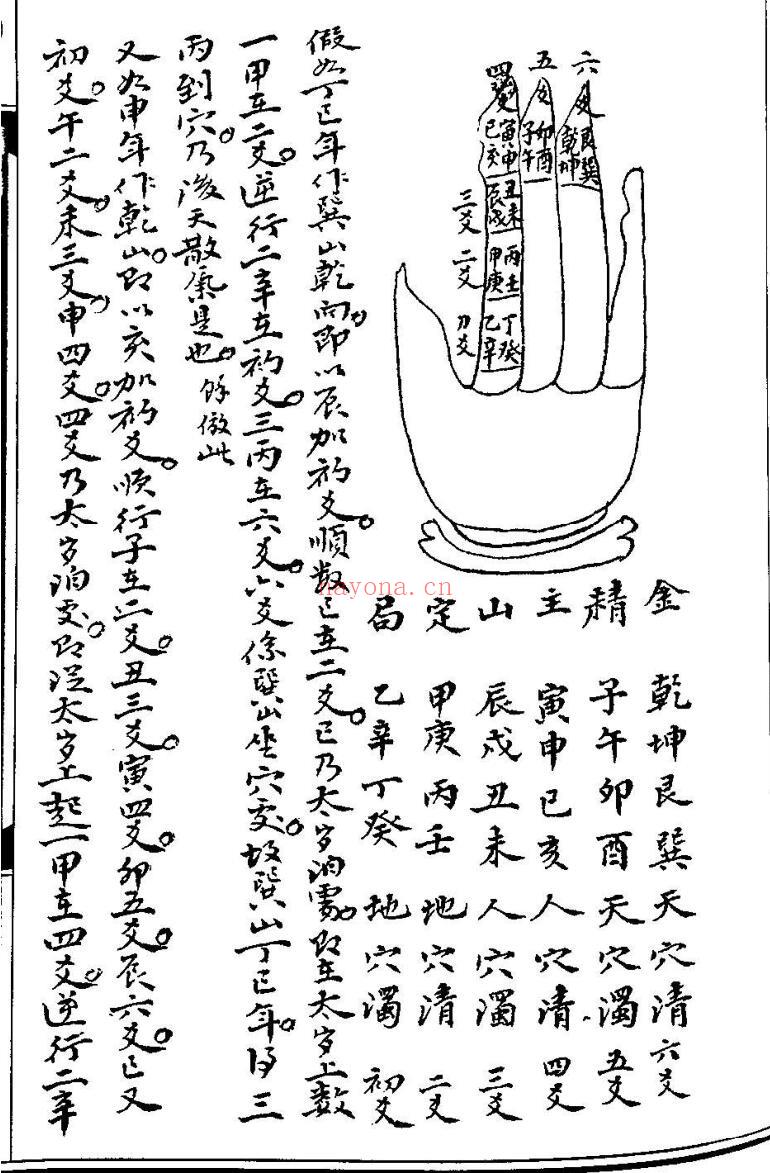 六爻
艮巽
乾坤
五爻
卯酉
子午
四爻
寅申
巳亥
三爻
丑未
辰戌
二爻
丙壬
甲庚
初爻
丁癸
乙辛
金精主山定局
乾坤艮巽天穴清六爻
子午卯酉天穴濁五爻
寅申巳亥人穴清四爻
辰戌丑未人穴濁三爻
甲庚丙壬地穴清二爻
乙辛丁癸地穴濁初爻
假如丁巳年作巽山乾向即以辰加初爻順数巳在二爻巳乃太岁泊處即在太岁上數
一甲在二爻逆行二辛在初爻三丙在六爻六爻係巽山坐穴處故巽山丁巳年得三
丙到穴乃後天散氣是也餘倣此
又如申年作乾山即以亥加初爻順行子在二爻丑三爻寅四爻卯五爻辰六爻巳又
初爻午二爻未三爻申四爻四爻乃太岁泊處即從太岁上起一甲在四爻逆行二辛
nayona.cn